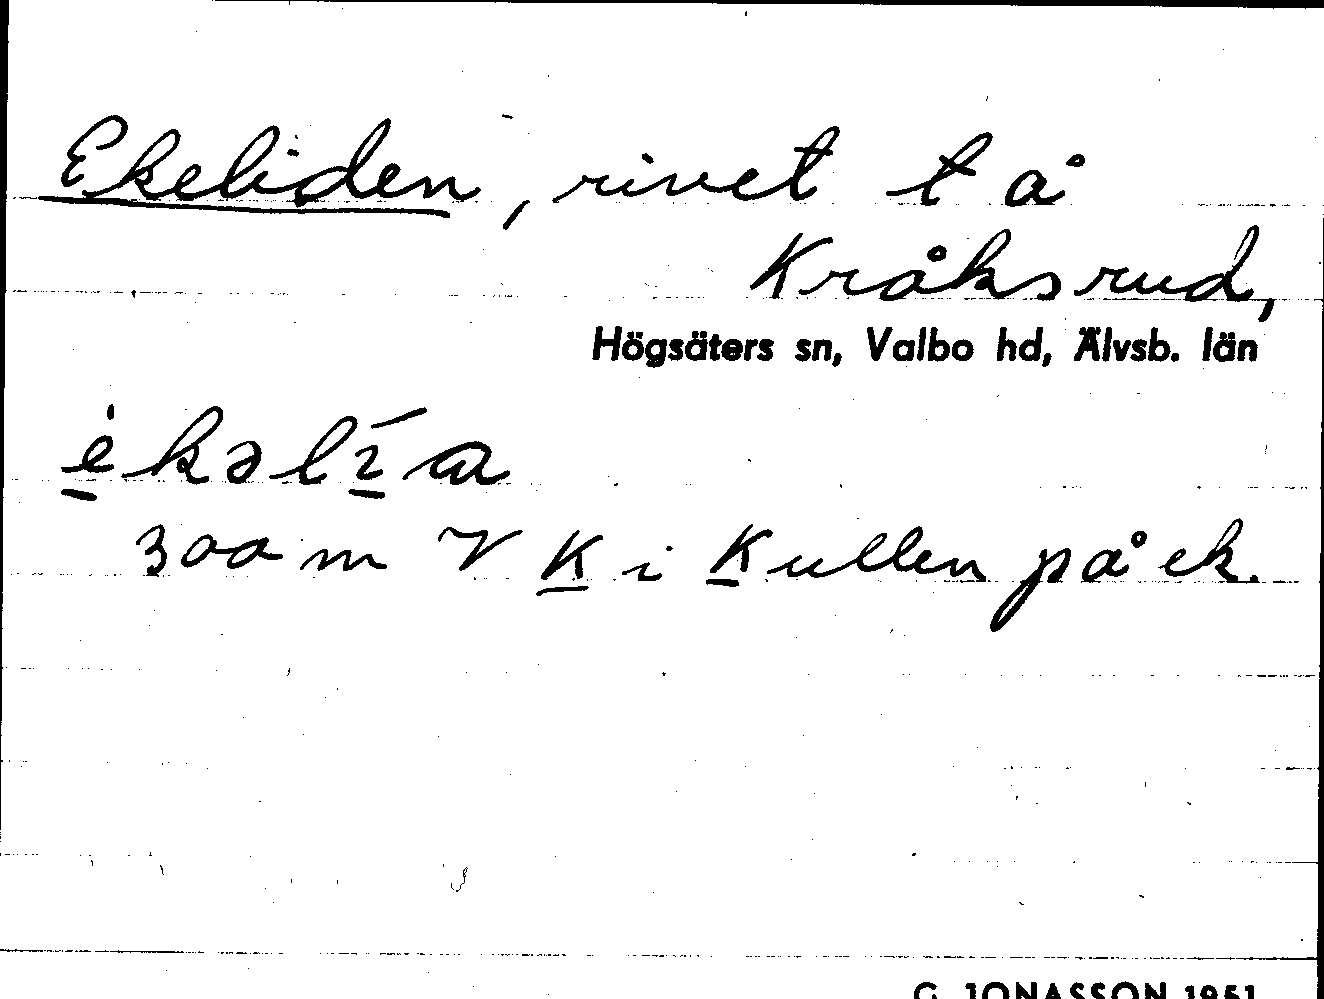 Ekeliden, rivet t å
Kråksrud,
Högsäters sn, Valbo hd, Älvsb. län
ekəlia
300 m V K i Kullen på ek.
G. JONASSON 1951